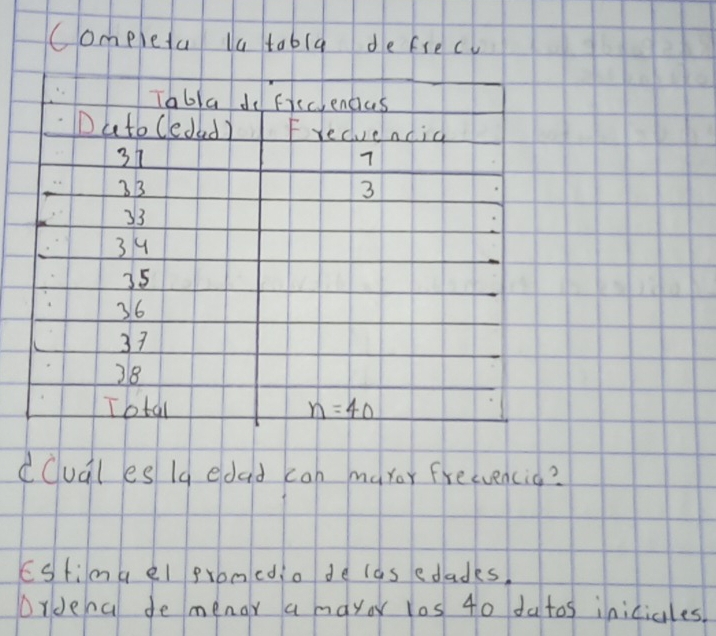 Completa la tabla de frecu
Tabla de frecuencias
Dato (edad) Frecuencia
31 1
33 3
33
34
35
36
37
38
Total n=40
¿Cuál es la edad con mayor frecuencia?
Estima el promedio de las edades.
Ordena de menor a mayor los 40 datos iniciales.